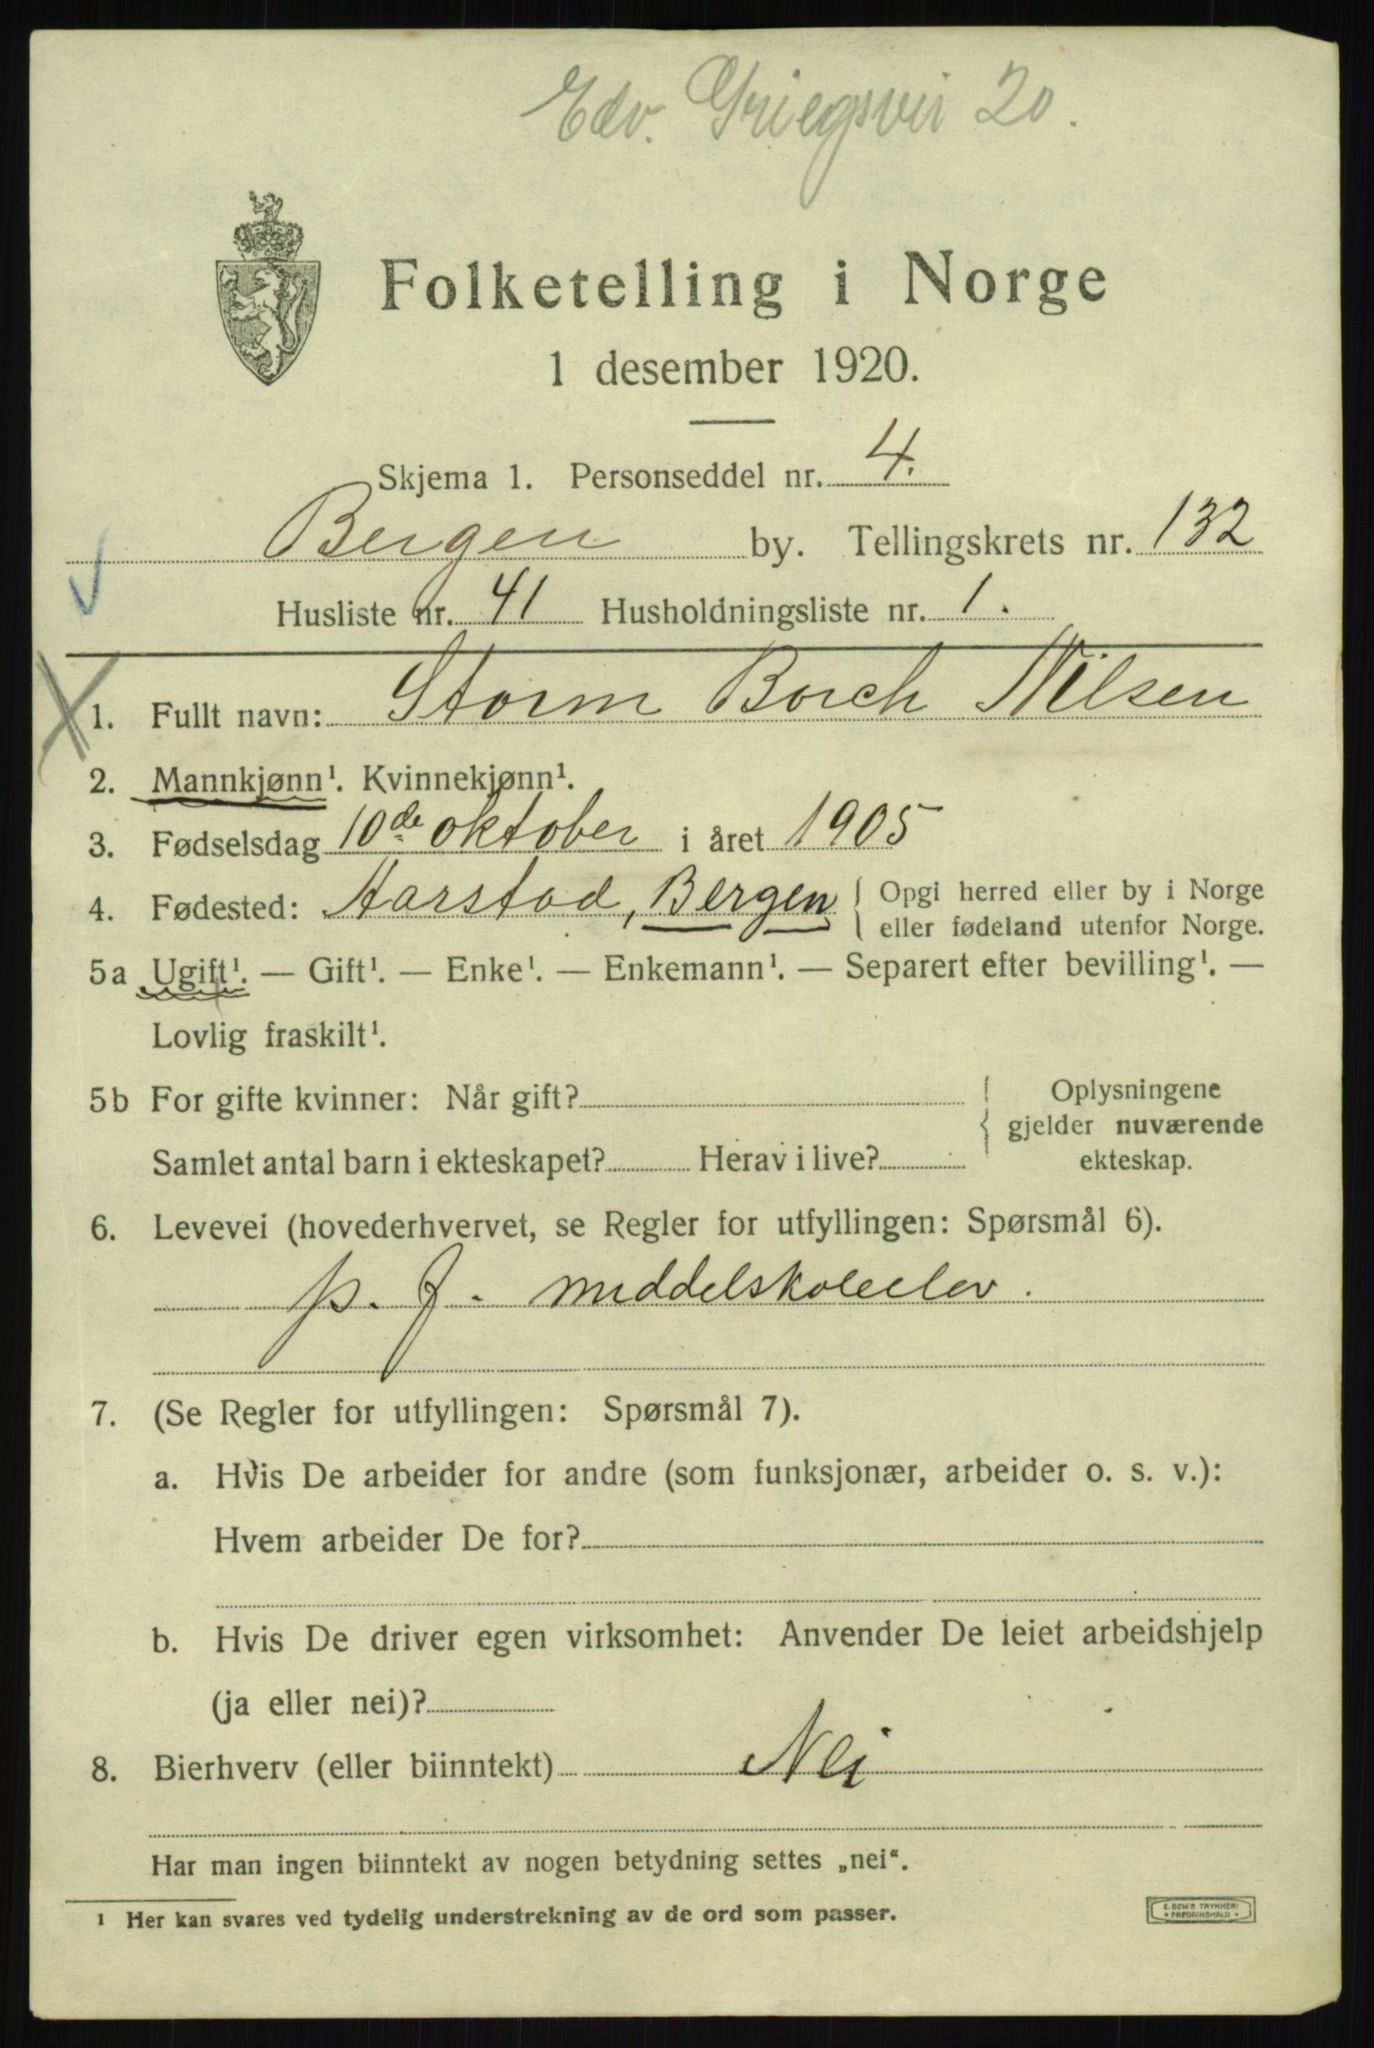 Edv. Griegsvei 20.
Folketelling i Norge
1 desember 1920.
Skjema 1. Personseddel nr. 4.
Bergen by. Tellingskrets nr. 132
Husliste nr. 41 Husholdningsliste nr. 1.
1. Fullt navn: Storm Borch Nilsen
2. Mannkjønn¹. Kvinnekjønn¹.
3. Fødselsdag 10de oktober i året 1905
4. Fødested: Aarstad, Bergen { Opgi herred eller by i Norge
eller fødeland utenfor Norge.
5a Ugift¹. — Gift¹. — Enke¹. — Enkemann¹. — Separert efter bevilling¹. —
Lovlig fraskilt¹.
5b For gifte kvinner: Når gift?
Samlet antal barn i ekteskapet? Herav i live?
{ Oplysningene
gjelder nuværende
ekteskap.
6. Levevei (hovederhvervet, se Regler for utfyllingen: Spørsmål 6).
p. f. middelskoleelev.
7. (Se Regler for utfyllingen: Spørsmål 7).
a. Hvis De arbeider for andre (som funksjonær, arbeider o. s. v.):
Hvem arbeider De for?
b. Hvis De driver egen virksomhet: Anvender De leiet arbeidshjelp
(ja eller nei)?
8. Bierhverv (eller biinntekt) Nei
Har man ingen biinntekt av nogen betydning settes „nei“.
¹ Her kan svares ved tydelig understrekning av de ord som passer.
E. SEM'S TRYKKERI
FREDRIKSHALD